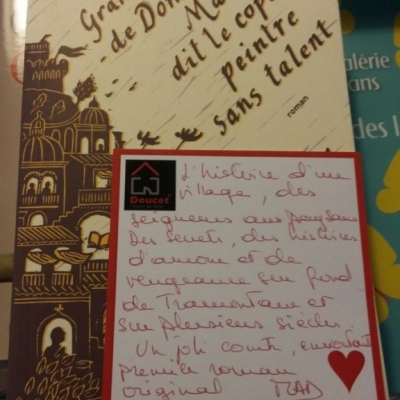 Gran
de Don
Ma
dit le cop
peintre
sans talent
roman
alérie
ans
des l
Doucet
L'histoire d'un
village, des
seigneurs aux paysans
Des secrets, des histoires
d'amour et de
vengeance sur fond
de Tramontane et
sur plusieurs siècles
Un joli conte, envoûtant
premier roman
original MAD